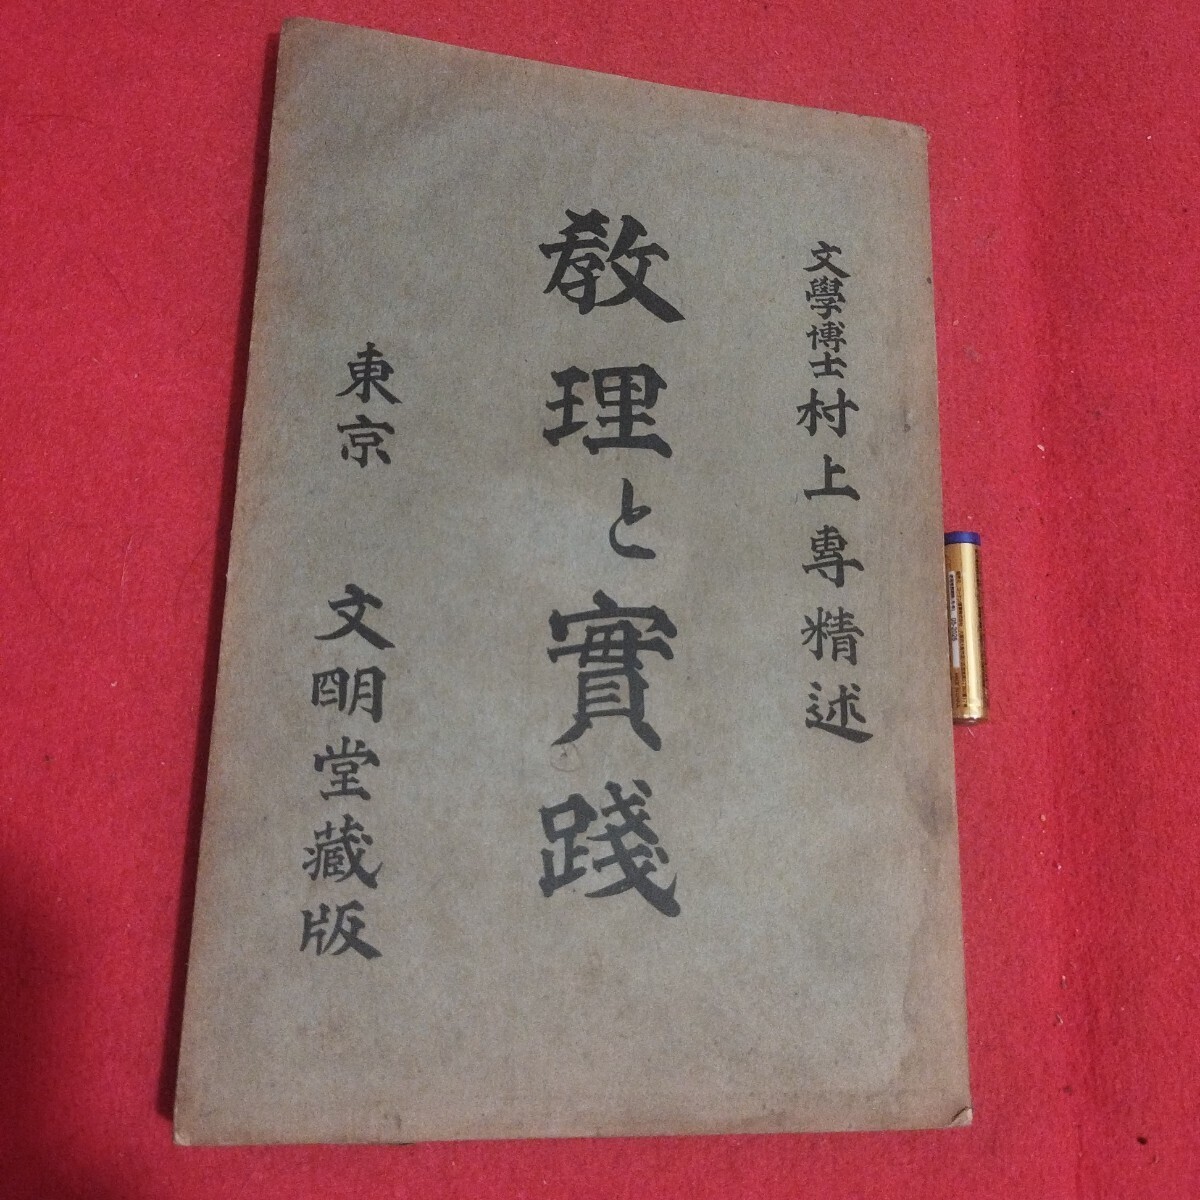 文學博士村上專精述
教理と實踐
東京 文明堂藏版